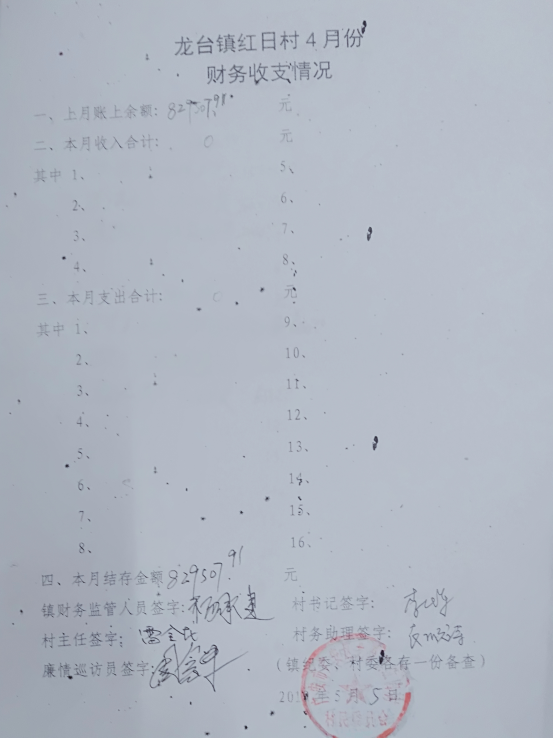 龙台镇红日村4月份
财务收支情况
一、上月账上余额: 829507.91 元
二、本月收入合计: 0 元
其中 1、 5、
2、 6、
3、 7、
4、 8、
三、本月支出合计: 0 元
其中 1、 9、
2、 10、
3、 11、
4、 12、
5、 13、
6、 14、
7、 15、
8、 16、
四、本月结存金额 829507.91 元
镇财务监管人员签字: 村书记签字:
村主任签字: 村务助理签字:
廉情巡访员签字:
(镇纪委、村委各存一份备查)
5月5日